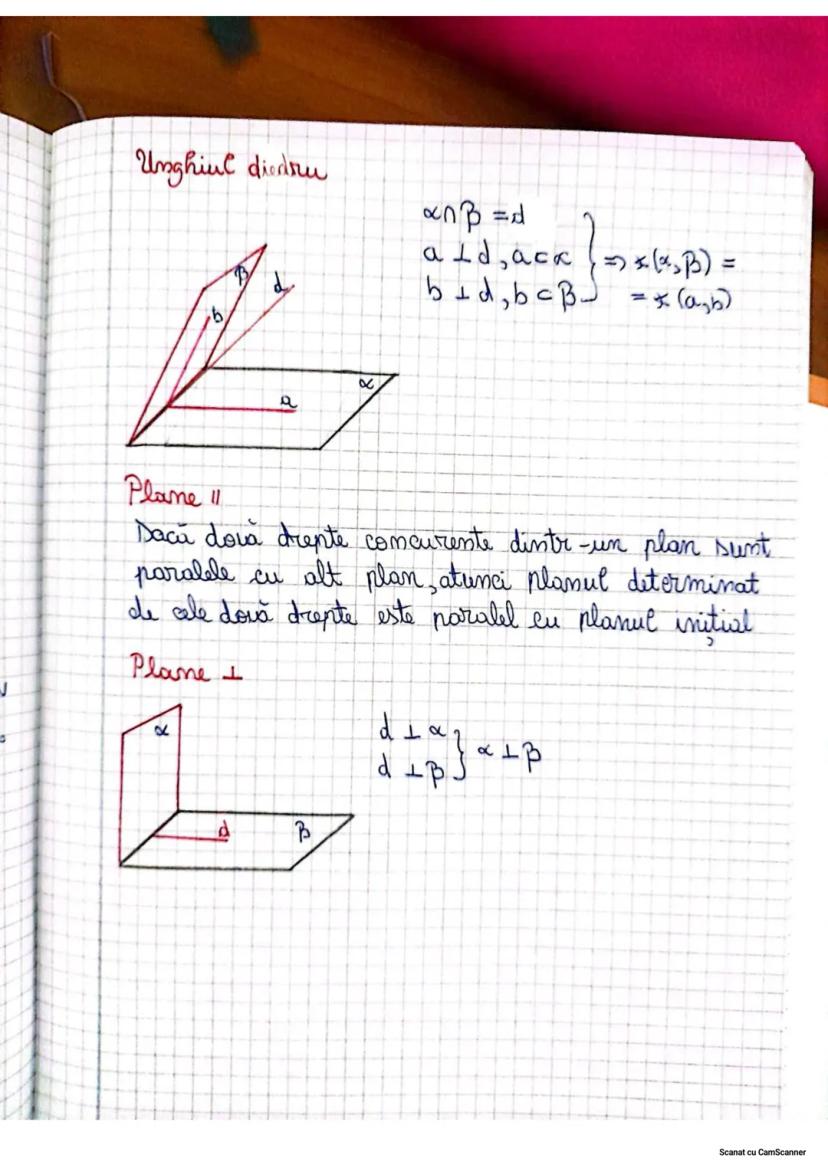 Unghiul diedru
α∩β = d
a ⊥ d, a ⊂ α
b ⊥ d, b ⊂ β } ⇒ ∢(α, β) =
= ∢(a, b)
β
d
b
α
a
Plane ||
Dacă două drepte concurente dintr-un plan sunt
paralele cu alt plan, atunci planul determinat
de cele două drepte este paralel cu planul inițial
Plane ⊥
α
d ⊥ α
d ⊥ β } α ⊥ β
d
β
Scanat cu CamScanner